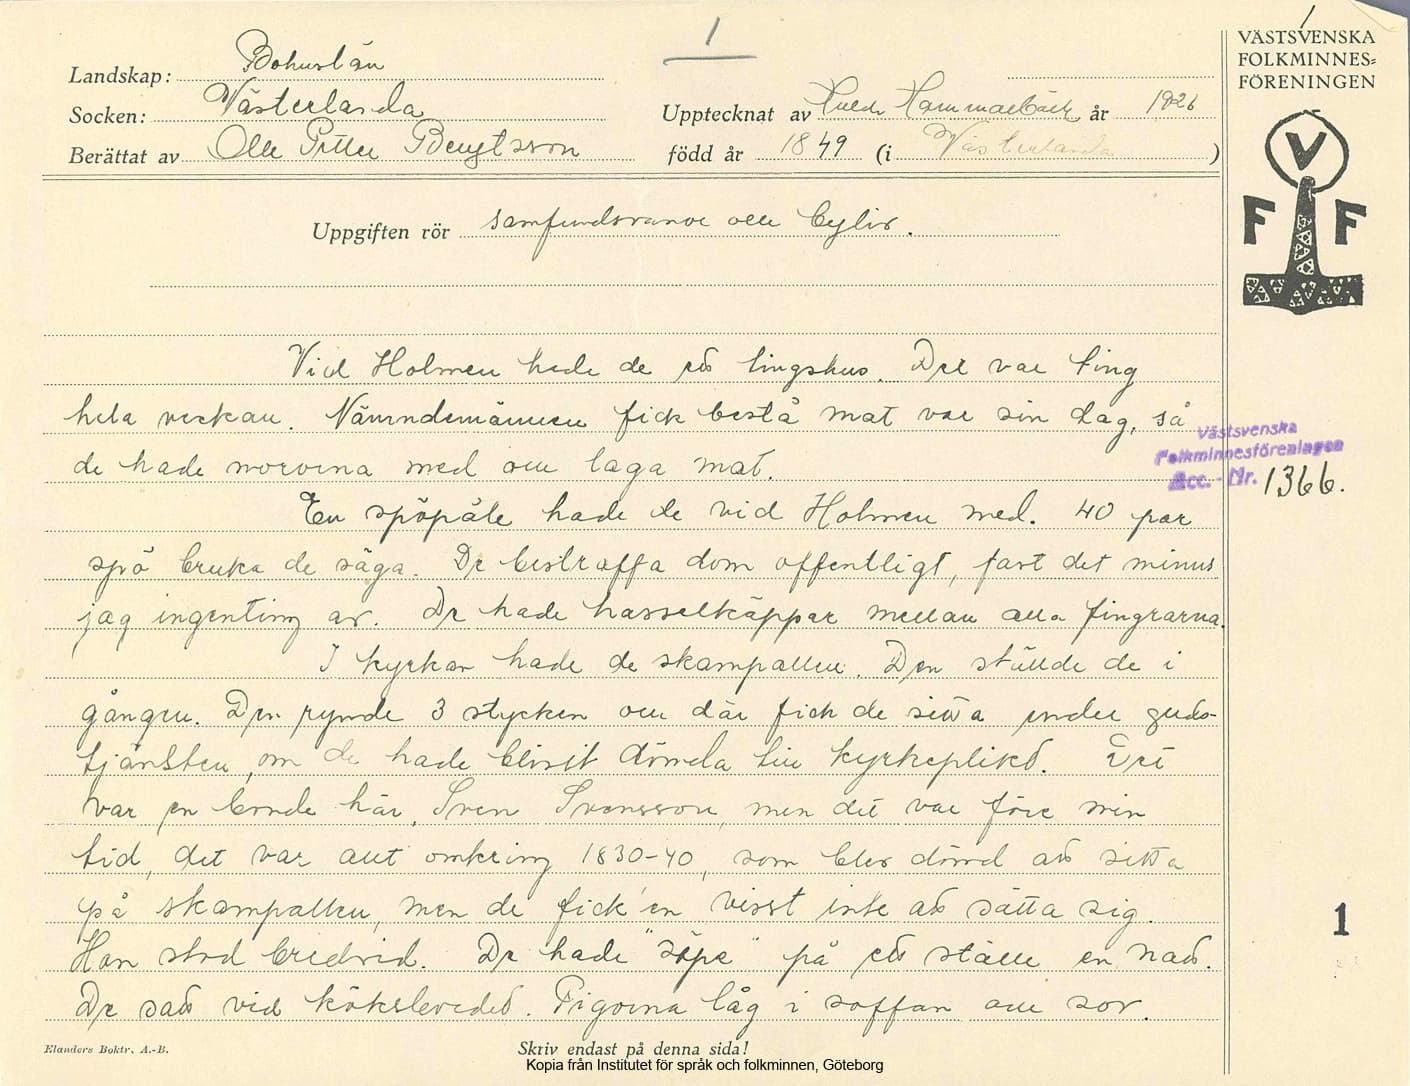 1
VÄSTSVENSKA
FOLKMINNES=
FÖRENINGEN
V
F F
Landskap: Bohuslän
Socken: Västerlanda
Upptecknat av Hammarbäck år 1926
Berättat av Olle Petter Bengtsson
född år 1849 (i Västerlanda)
Uppgiften rör samfundsvanor och
Vid Holmen hade de ett tingshus. Det var ting
hela veckan. Nämndemännen fick bestå mat var sin dag, så
de hade mororna med och laga mat.
Västsvenska
Folkminnesföreningen
Acc. - Nr. 1366.
En spöpåle hade de vid Holmen med. 40 par
spö bruka de säga. De bestraffa dom offentligt, fast det minns
jag ingenting av. De hade hasselkäppar mellan alla fingrarna.
I kyrkan hade de skampallen. Den ställde de i
gången. Den rymde 3 stycken och där fick de sitta under guds-
tjänsten, om de hade blivit dömda till kyrkeplikt. Det
var en bonde här, Sven Svensson, men det var före min
tid, det var allt omkring 1830-40, som blev dömd att sitta
på skampallen, men de fick'en visst inte att sätta sig.
Han stod bredvid. De hade "söpe" på ett ställe en natt.
De satt vid köksbordet. Pigorna låg i soffan och sov.
1
Elanders Boktr. A.-B.
Skriv endast på denna sida!
Kopia från Institutet för språk och folkminnen, Göteborg